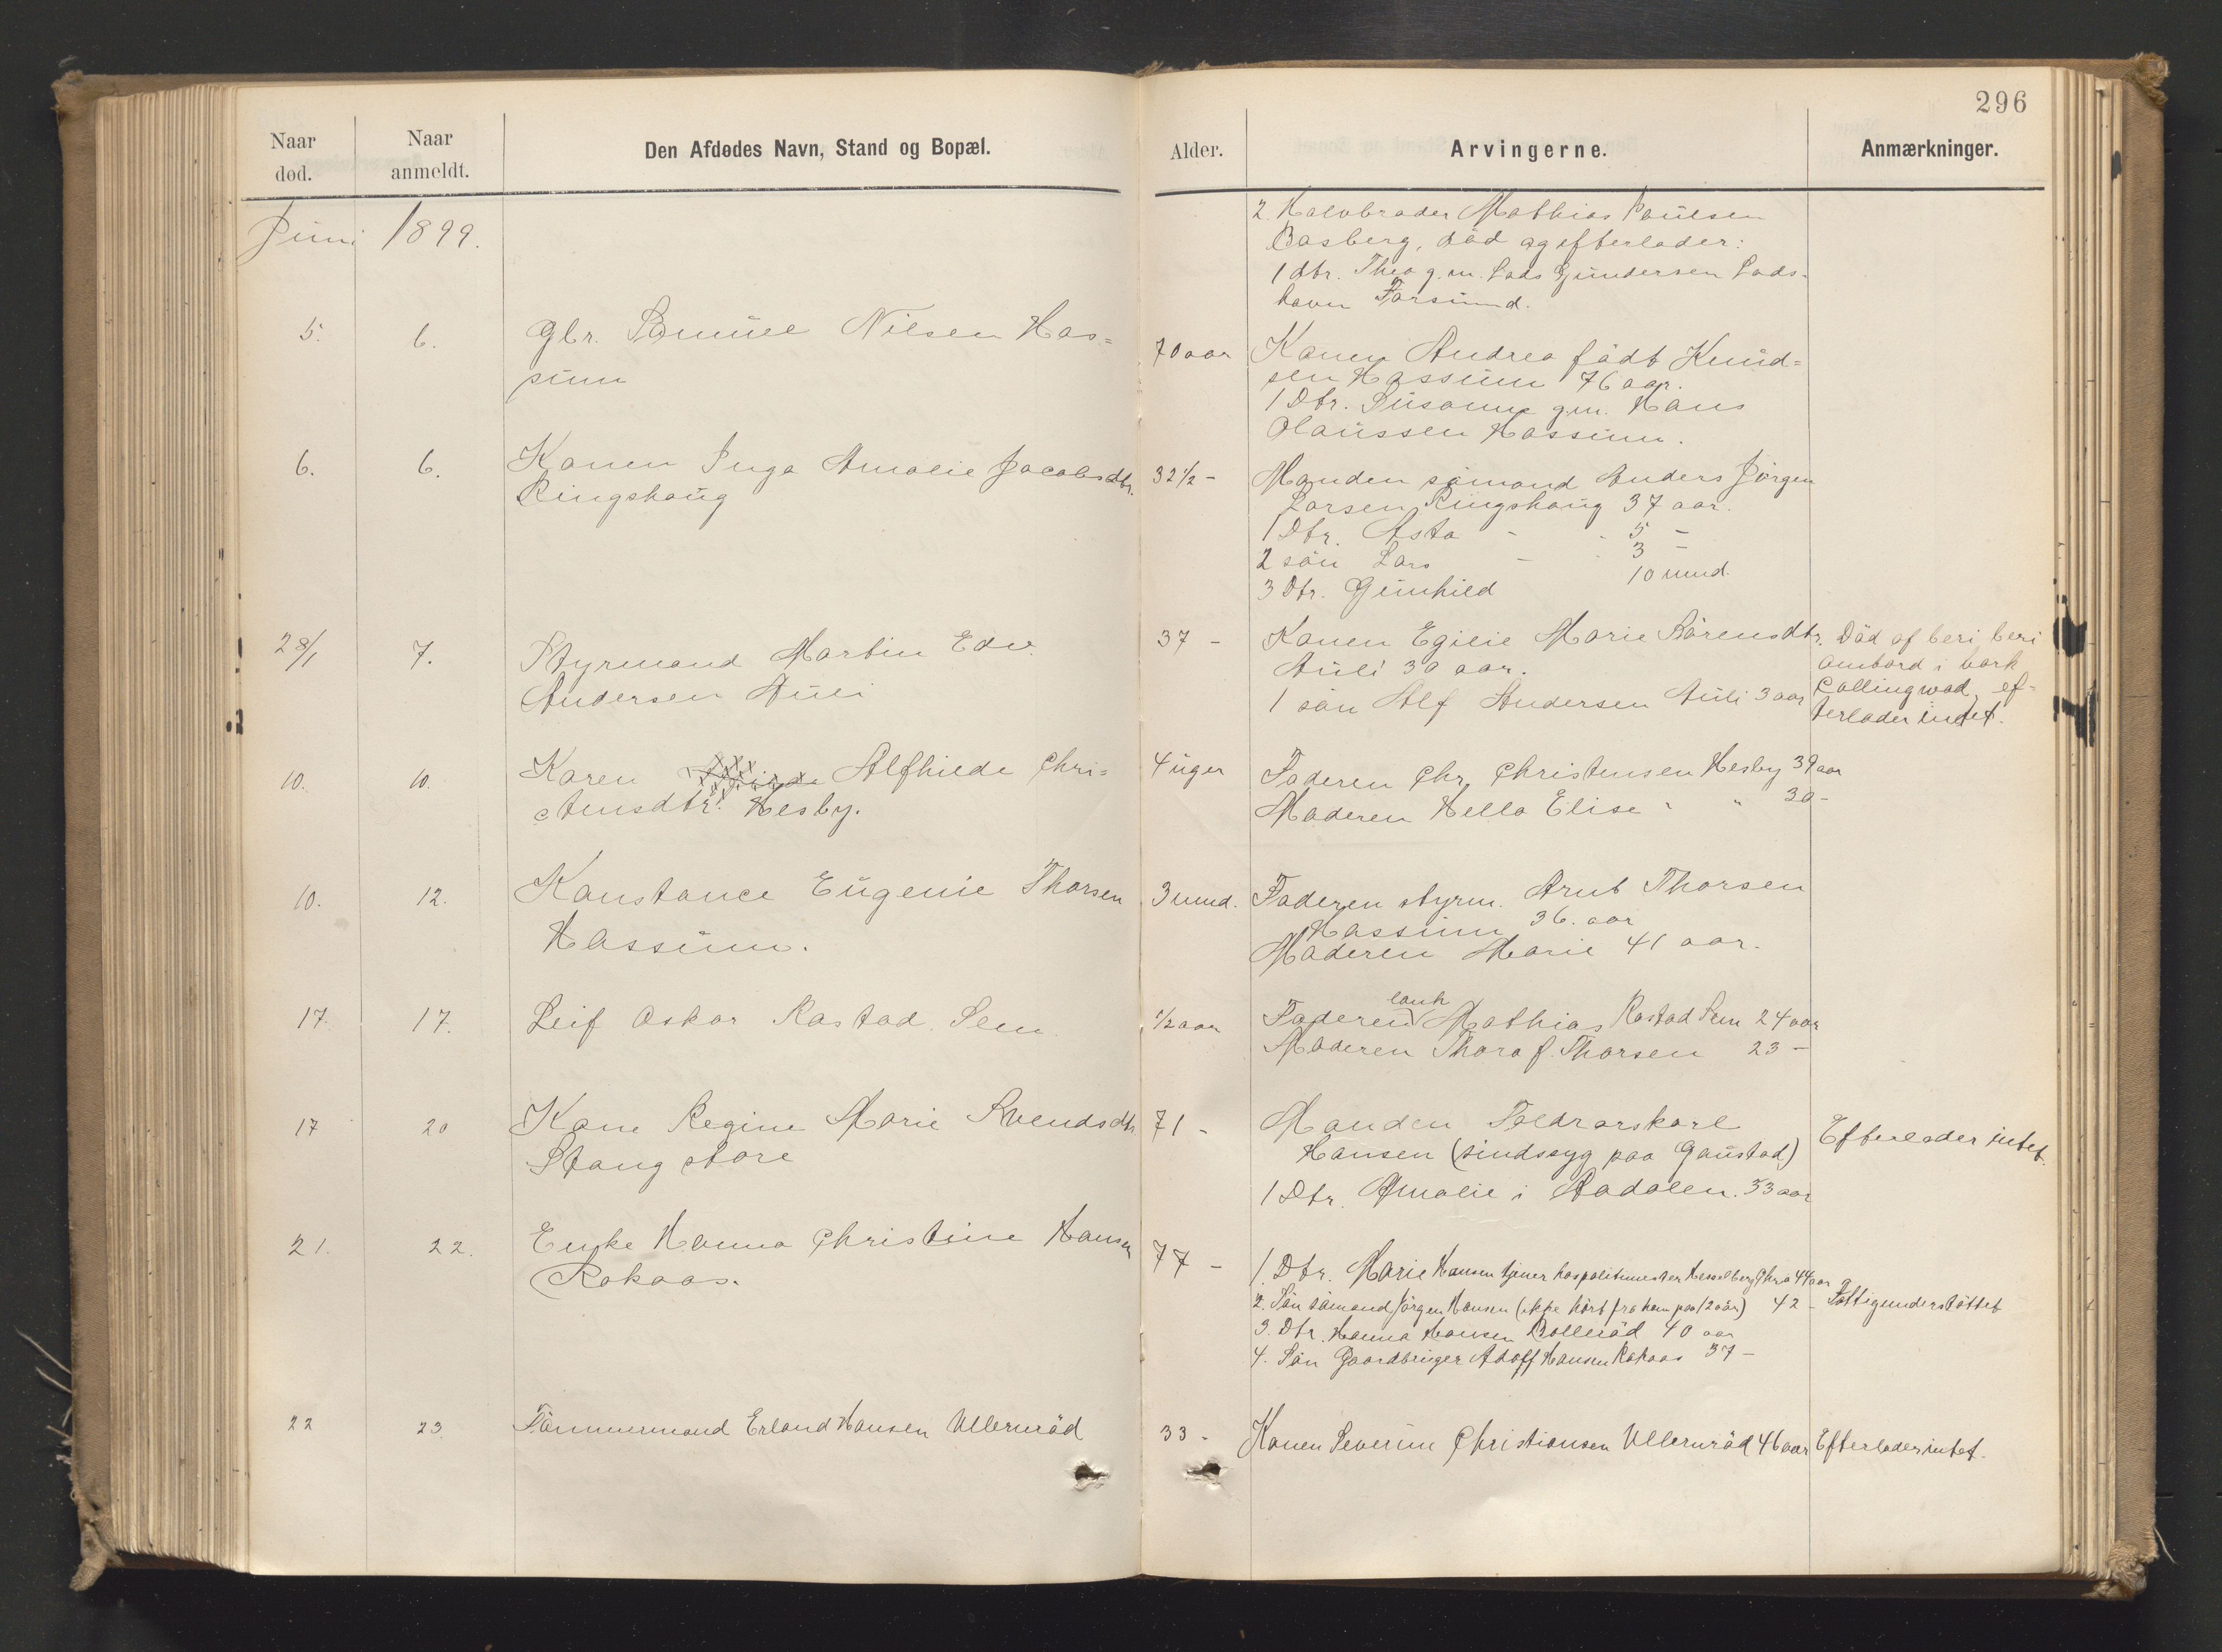 296
Naar død.
Naar anmeldt.
Den Afdødes Navn, Stand og Bopæl.
Alder.
Arvingerne.
Anmærkninger.
Juni 1899.
2. Halvbroder Mathias Paulsen
Basberg, död og efterlader:
1 dtr. Thea g. m. Lods Gundersen Lods-
havn Farsund.
5. 6. Gbr. Samuel Nilsen Has=
sum
70 aar
Konen Andrea födt Knud=
sen Hassum 76 aar.
1 Dtr. Susanne gm. Hans
Olaussen Hassum.
6. 6. Konen Inga Amalie Jacobsdtr.
Ringshaug
32½ -
Manden sömand Anders Jörgen
Larsen Ringshaug 37 aar.
1 Dtr. Asta - 5 -
2 sön Lars - 3 -
3 Dtr. Gunhild 10 mnd.
28/1 7. Styrmand Martin Edv.
Andersen Auli
37 -
Konen Egilie Marie Sörensdtr.
Auli 30 aar.
1 sön Alf Andersen Auli 3 aar
Död af beri beri
ombord i bark
Collingwod, ef=
terlader intet.
10. 10. Karen Alfhilde Chri=
stensdtr. Hesby.
4 uger
Faderen Chr. Christensen Hesby 39 aar
Moderen Hella Elise " " 30 -
10. 12. Konstance Eugenie Thorsen
Hassum.
3 mnd.
Faderen styrm. Arnt Thorsen
Hassum 36. aar
Moderen Marie 41 aar.
17. 17. Leif Oskar Rastad Sem
½ aar
Faderen Mathias Rastad Sem 24 aar
Moderen Thora f. Thorsen 23 -
17 20 Kone Regine Marie Svendsdtr
Stang store
71 -
Manden Foldrorskarl
Hansen (sindssyg paa Gaustad)
1 Dtr. Amalie i Aadalen. 33 aar
Efterlader intet.
21. 22. Enke Hanna Christine Hansen
Rakaas.
77 -
1. Dtr. Marie Hansen tjener hos politimester Hesselberg Chra 44 aar
2. Sön sömand Jörgen Hansen (ikke hört fra ham paa 12 aar) 42 -
3. Dtr. Hanna Hansen Bolleröd 40 aar
4. Sön Gaardbruger Adolf Hansen Rakaas 37 -
Fattigunderstöttet
22 23. Tömmermand Erland Hansen Ullernröd
33 -
Konen Severine Christiansen Ullernröd 46 aar
Efterlader intet.